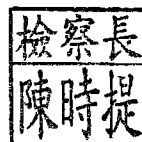 檢察長
陳時提